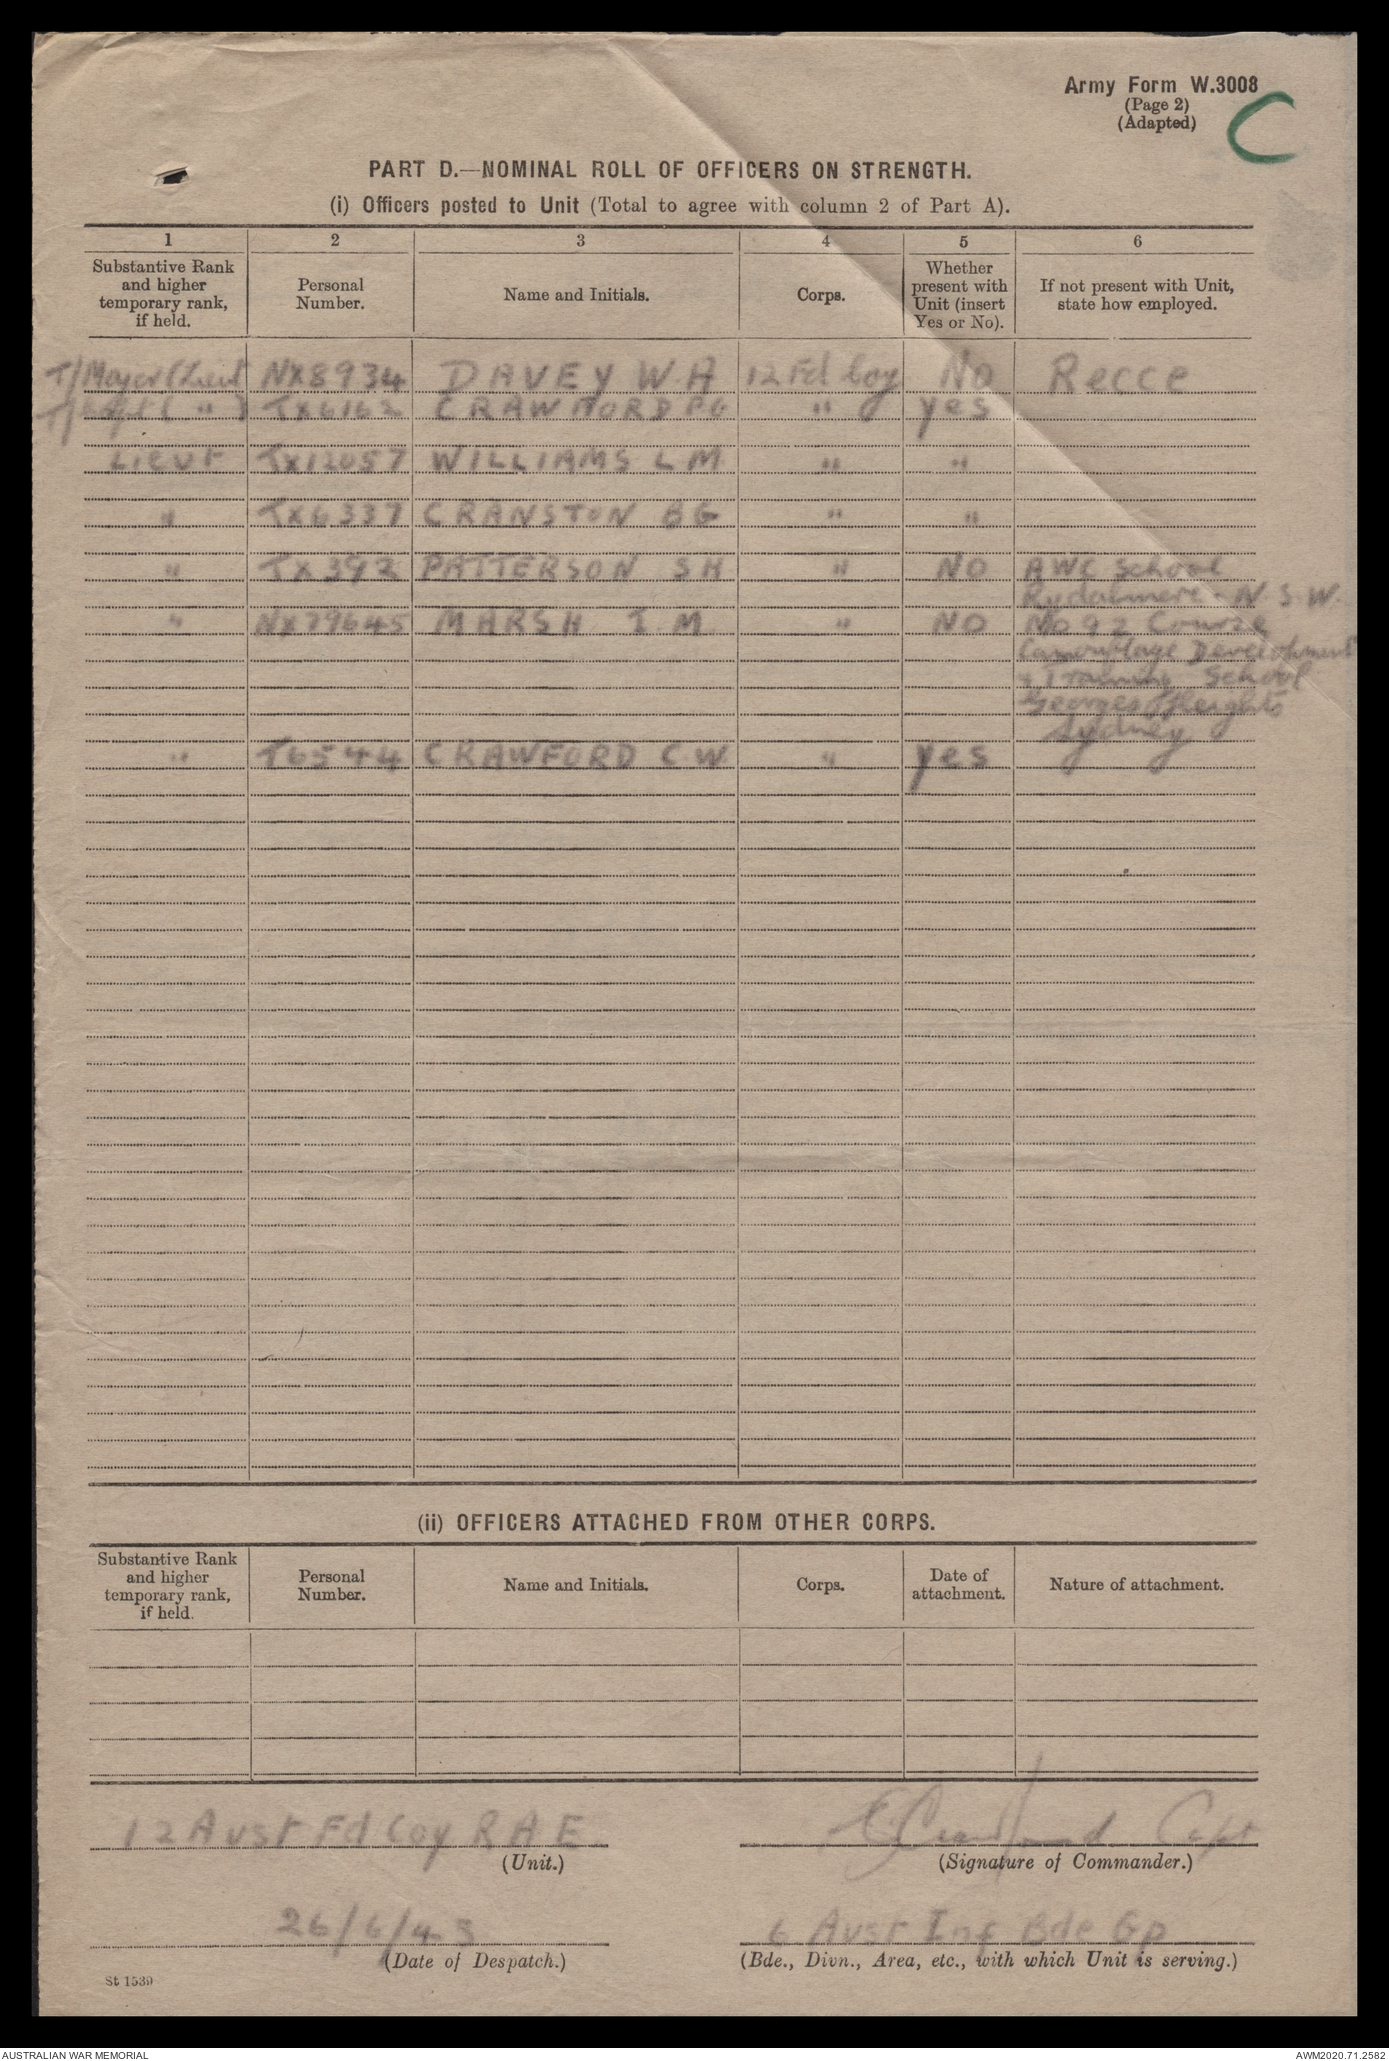 Army Form W.3008
(Page 2)
(Adapted)
C
PART D.—NOMINAL ROLL OF OFFICERS ON STRENGTH.
(i) Officers posted to Unit (Total to agree with column 2 of Part A).
1 2 3 4 5 6
Substantive Rank and higher temporary rank, if held. Personal Number. Name and Initials. Corps. Whether present with Unit (insert Yes or No). If not present with Unit, state how employed.
T/Major (Lieut NX8934 DAVEY W.A 12 Fd Coy No Recce
T/Capt ( " ) TX6162 CRAWFORD " yes
Lieut TX12057 WILLIAMS L M " "
" TX6337 CRANSTON BG " "
" TX392 PATTERSON SH " NO AWC School
Rydalmere - N.S.W.
" NX79645 MARSH I.M. " NO No 92 Course
Camouflage Development
& Training School
Georges Heights
Sydney
" T6544 CRAWFORD C.W " yes
(ii) OFFICERS ATTACHED FROM OTHER CORPS.
Substantive Rank and higher temporary rank, if held. Personal Number. Name and Initials. Corps. Date of attachment. Nature of attachment.
12 Aust Fd Coy R A E Crawford Capt
(Unit.) (Signature of Commander.)
26/6/43 6 Aust Inf Bde Gp
(Date of Despatch.) (Bde., Divn., Area, etc., with which Unit is serving.)
St 1539
AUSTRALIAN WAR MEMORIAL AWM2020.71.2582